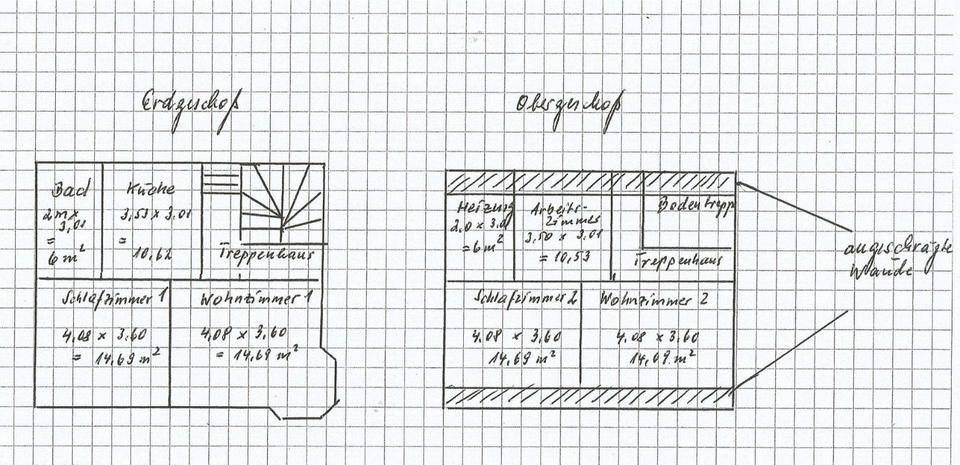 Erdgeschoß
Bad
2m x
3,01
=
6m²
Küche
3,53 x 3,01
=
10,62
Treppenhaus
Schlafzimmer 1
4,08 x 3,60
= 14,69 m²
Wohnzimmer 1
4,08 x 3,60
= 14,69 m²
Obergeschoß
Heizung
2,0 x 3,01
= 6m²
Arbeits-
zimmer
3,50 x 3,01
= 10,53
Bodentrepp
Treppenhaus
Schlafzimmer 2
4,08 x 3,60
14,69 m²
Wohnzimmer 2
4,08 x 3,60
14,69 m²
angeschrägte
Wände